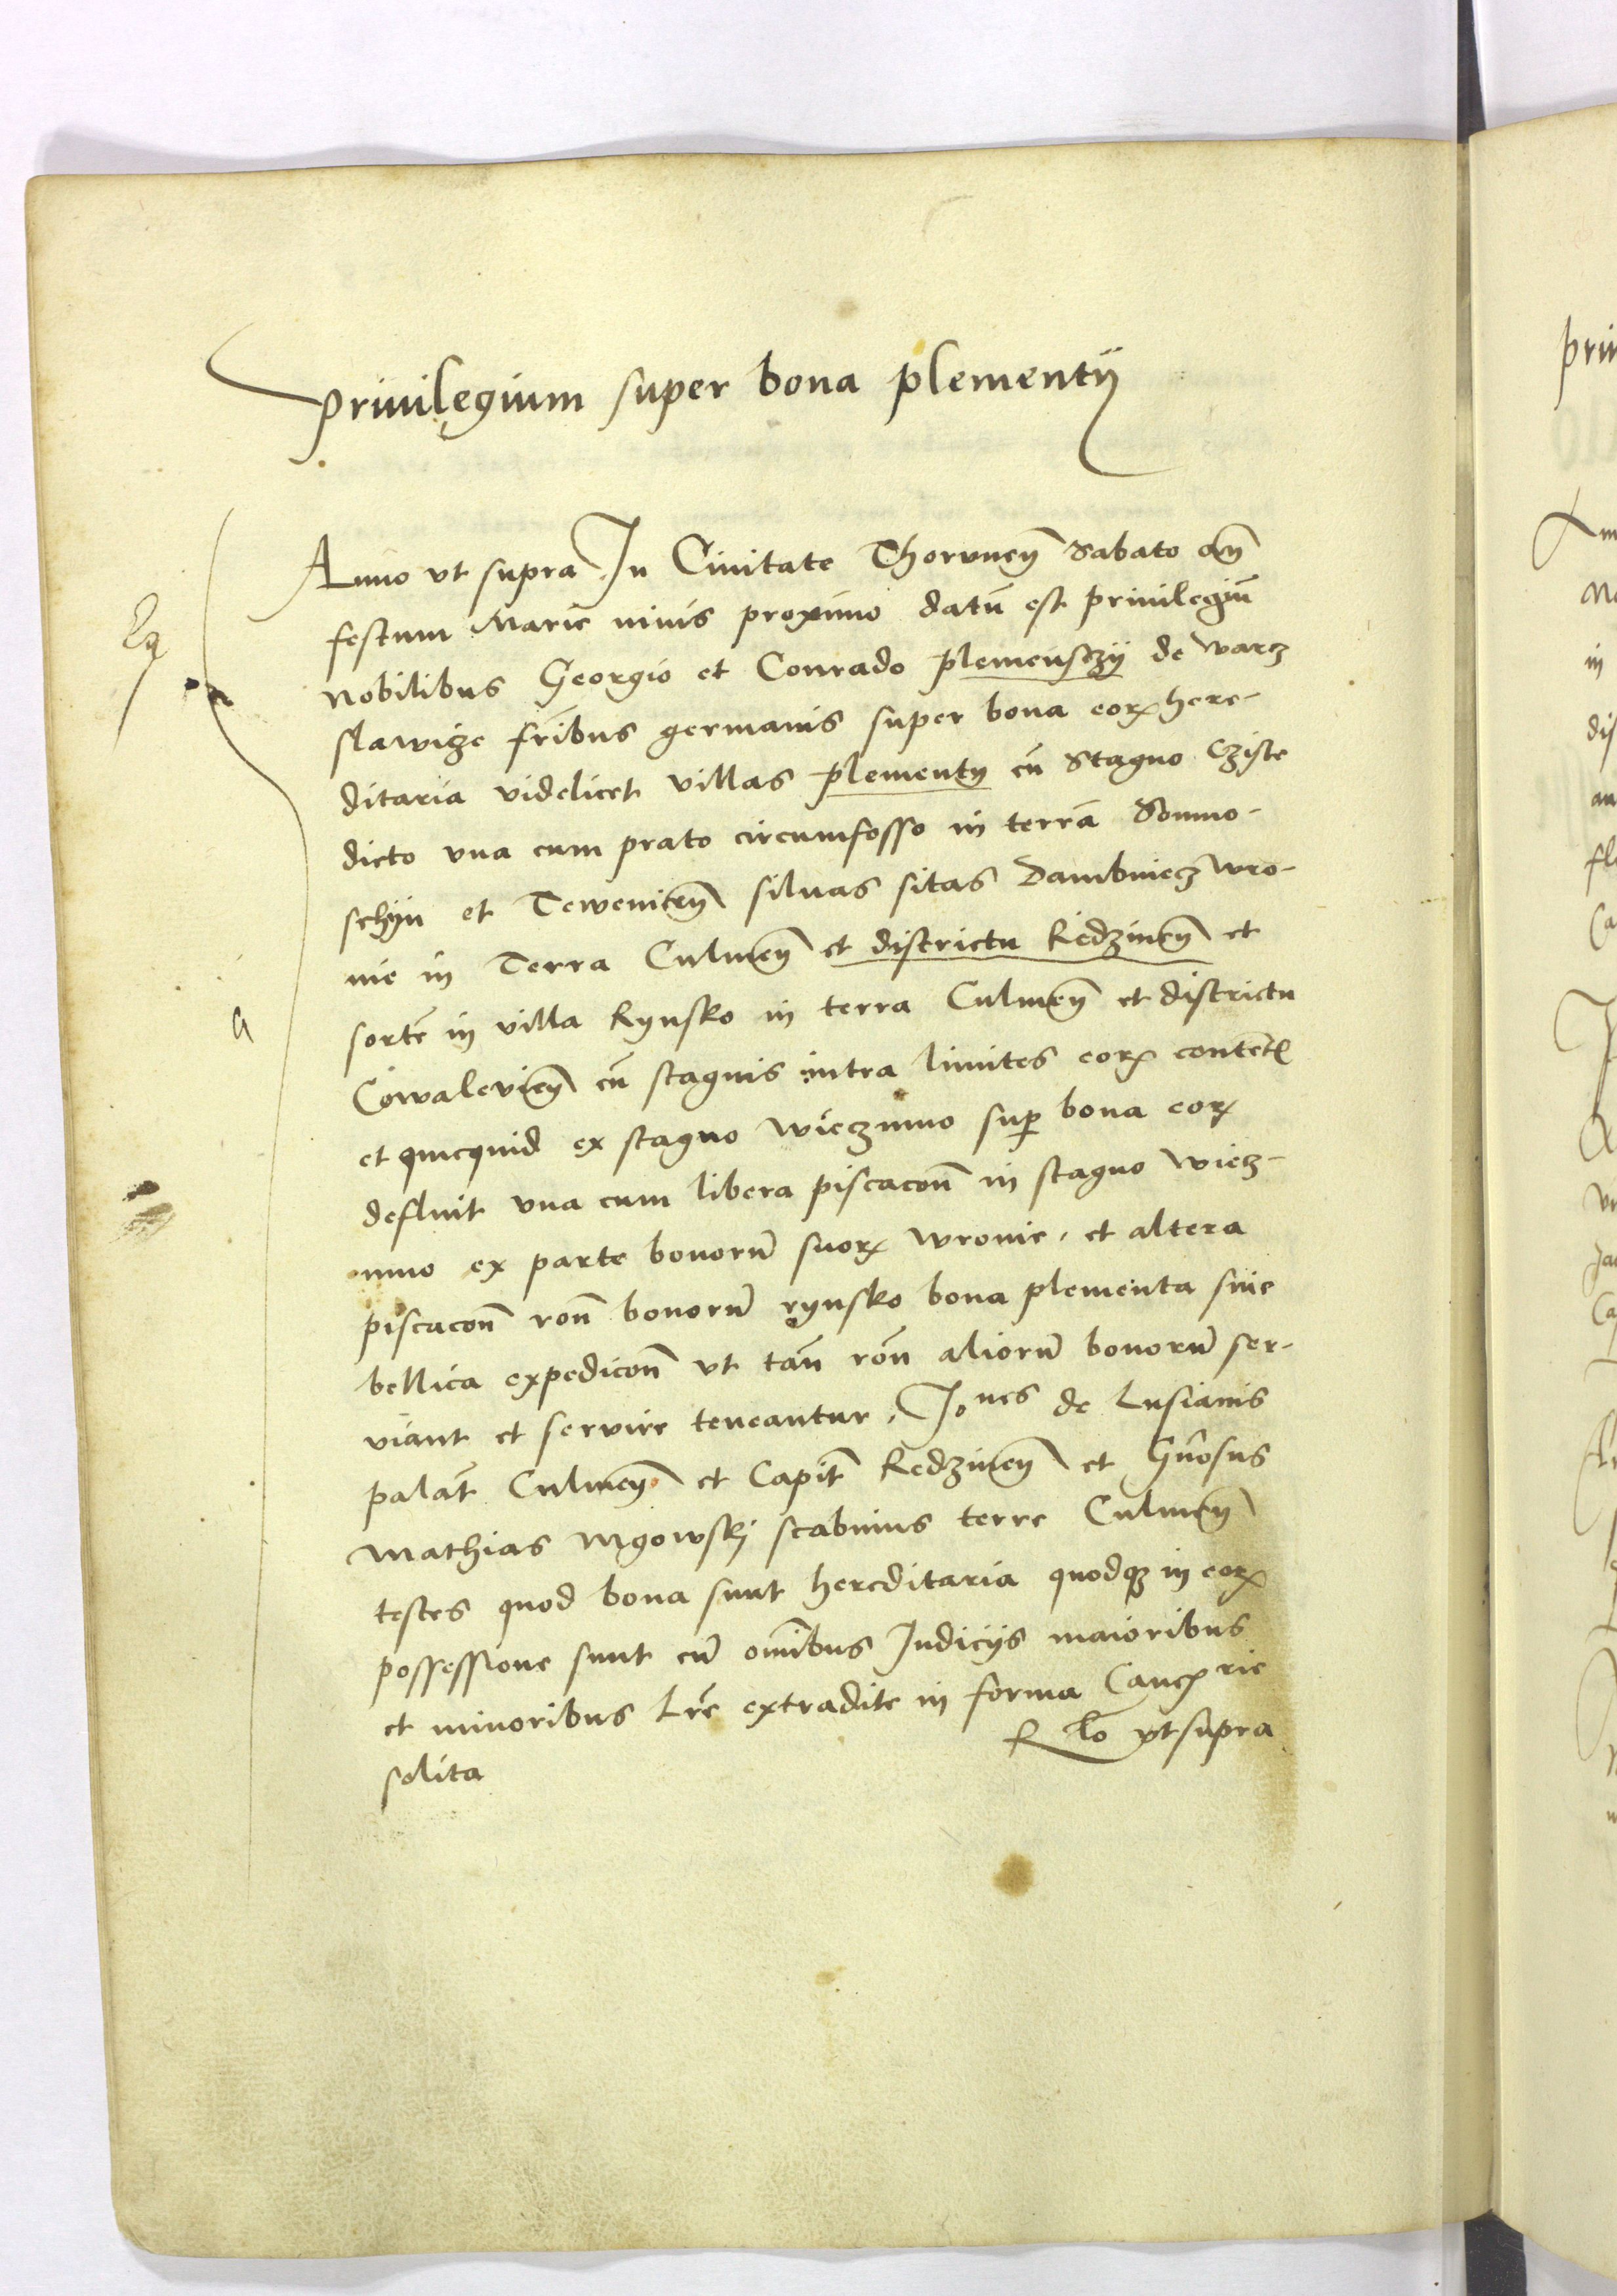 Priuilegium super bona plementÿ
Anno vt supra In Ciuitate Thorunen̄ Sabato an̄
festum Marie niuis proximo datū est priuilegiū
nobilibus Georgio et Conrado plemensczÿ de warcz
slawicze fr̄ibus germanis super bona eorꝝ here-
ditaria videlicet villas plementy cū Stagno Cziste
dicto vna cum prato circumfosso in terrā Somno-
schÿn et Teweniten̄ siluas sitas Dambniecz wro-
nie in Terra Culmen̄ et districtu Redzinen̄ et
sortē in villa Rynsko in terra Culmen̄ et districtu
Cowaleuien̄ cū stagnis intra limites eorꝝ content̄
et quicquid ex stagno wieczmno sup̄ bona eorꝝ
defluit vna cum libera piscacōn̄ in stagno wiecz-
mno ex parte bonorū suorꝝ wronie, et altera
piscacōn̄ rōn̄ bonorū rynsko bona plementa siue
bellica expedicōn̄ vt tān̄ rōn̄ aliorū bonorū ser-
uiant et seruire teneantur, Jo nes de Lusianis
palat̄ Culmen̄ et Capit̄ Redzinen̄ et Gn̄osus
Mathias Mgowskj scabinus terre Culmen̄
testes quod bona sunt hereditaria quodqꝫ in eorꝝ
possessione sunt cū om̄ibus Judicijs maioribus
et minoribus Lr̄e extradite in forma Canꝯrie
solita
Rlo vt supra